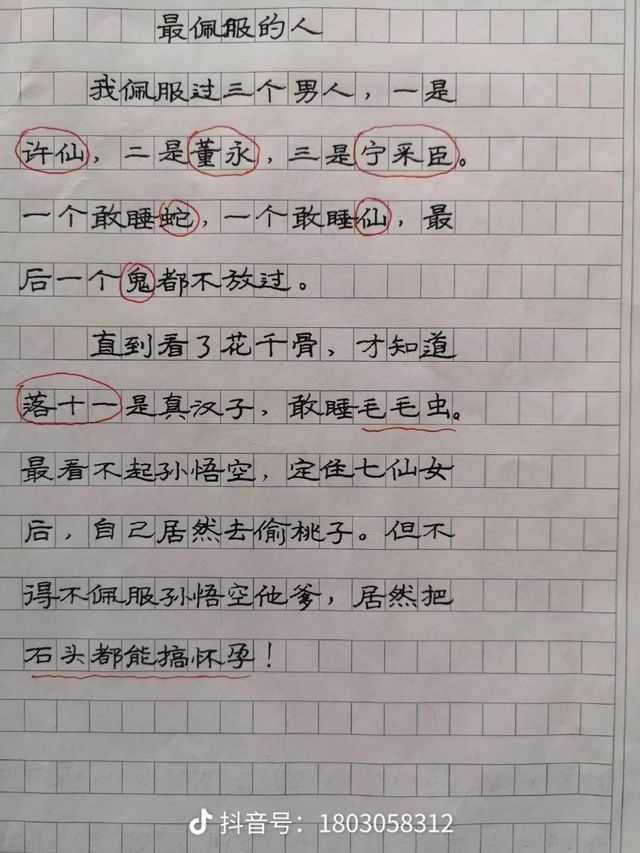 最佩服的人
我佩服过三个男人，一是
许仙，二是董永，三是宁采臣。
一个敢睡蛇，一个敢睡仙，最
后一个鬼都不放过。
直到看了花千骨，才知道
落十一是真汉子，敢睡毛毛虫。
最看不起孙悟空，定住七仙女
后，自己居然去偷桃子。但不
得不佩服孙悟空他爹，居然把
石头都能搞怀孕！
抖音号：1803058312